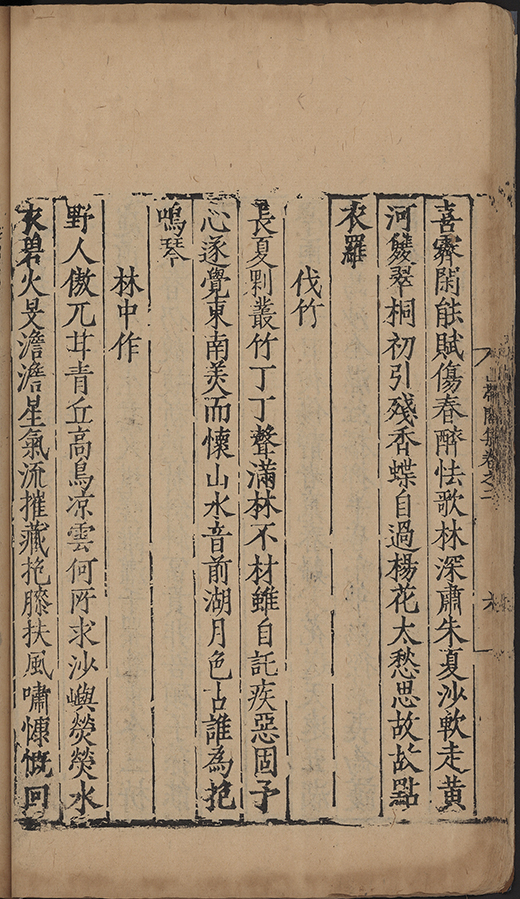 喜霽閑能賦傷春醉怯歌林深肅朱夏沙軟走黃
河雙翠桐初引殘香蝶自過楊花太愁思故故點
衣羅
伐竹
長夏剝叢竹丁丁聲滿林不材雖自託疾惡固予
心遂覺東南美而懷山水音前湖月色古誰為抱
鳴琴
林中作
野人傲兀甘青丘高鳥凉雲何所求沙嶼熒熒水
衣碧火旻澹澹星氣流摧藏抱膝扶風嘯慷慨回
集卷之二